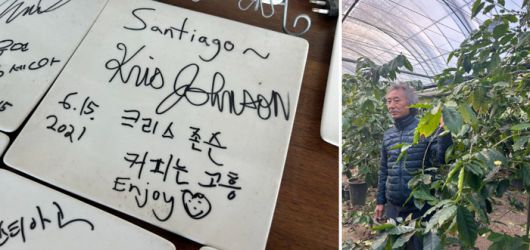 Santiago~
Kris Johnson
6.15.
2021
크리스 존슨
커피는 고흥
Enjoy